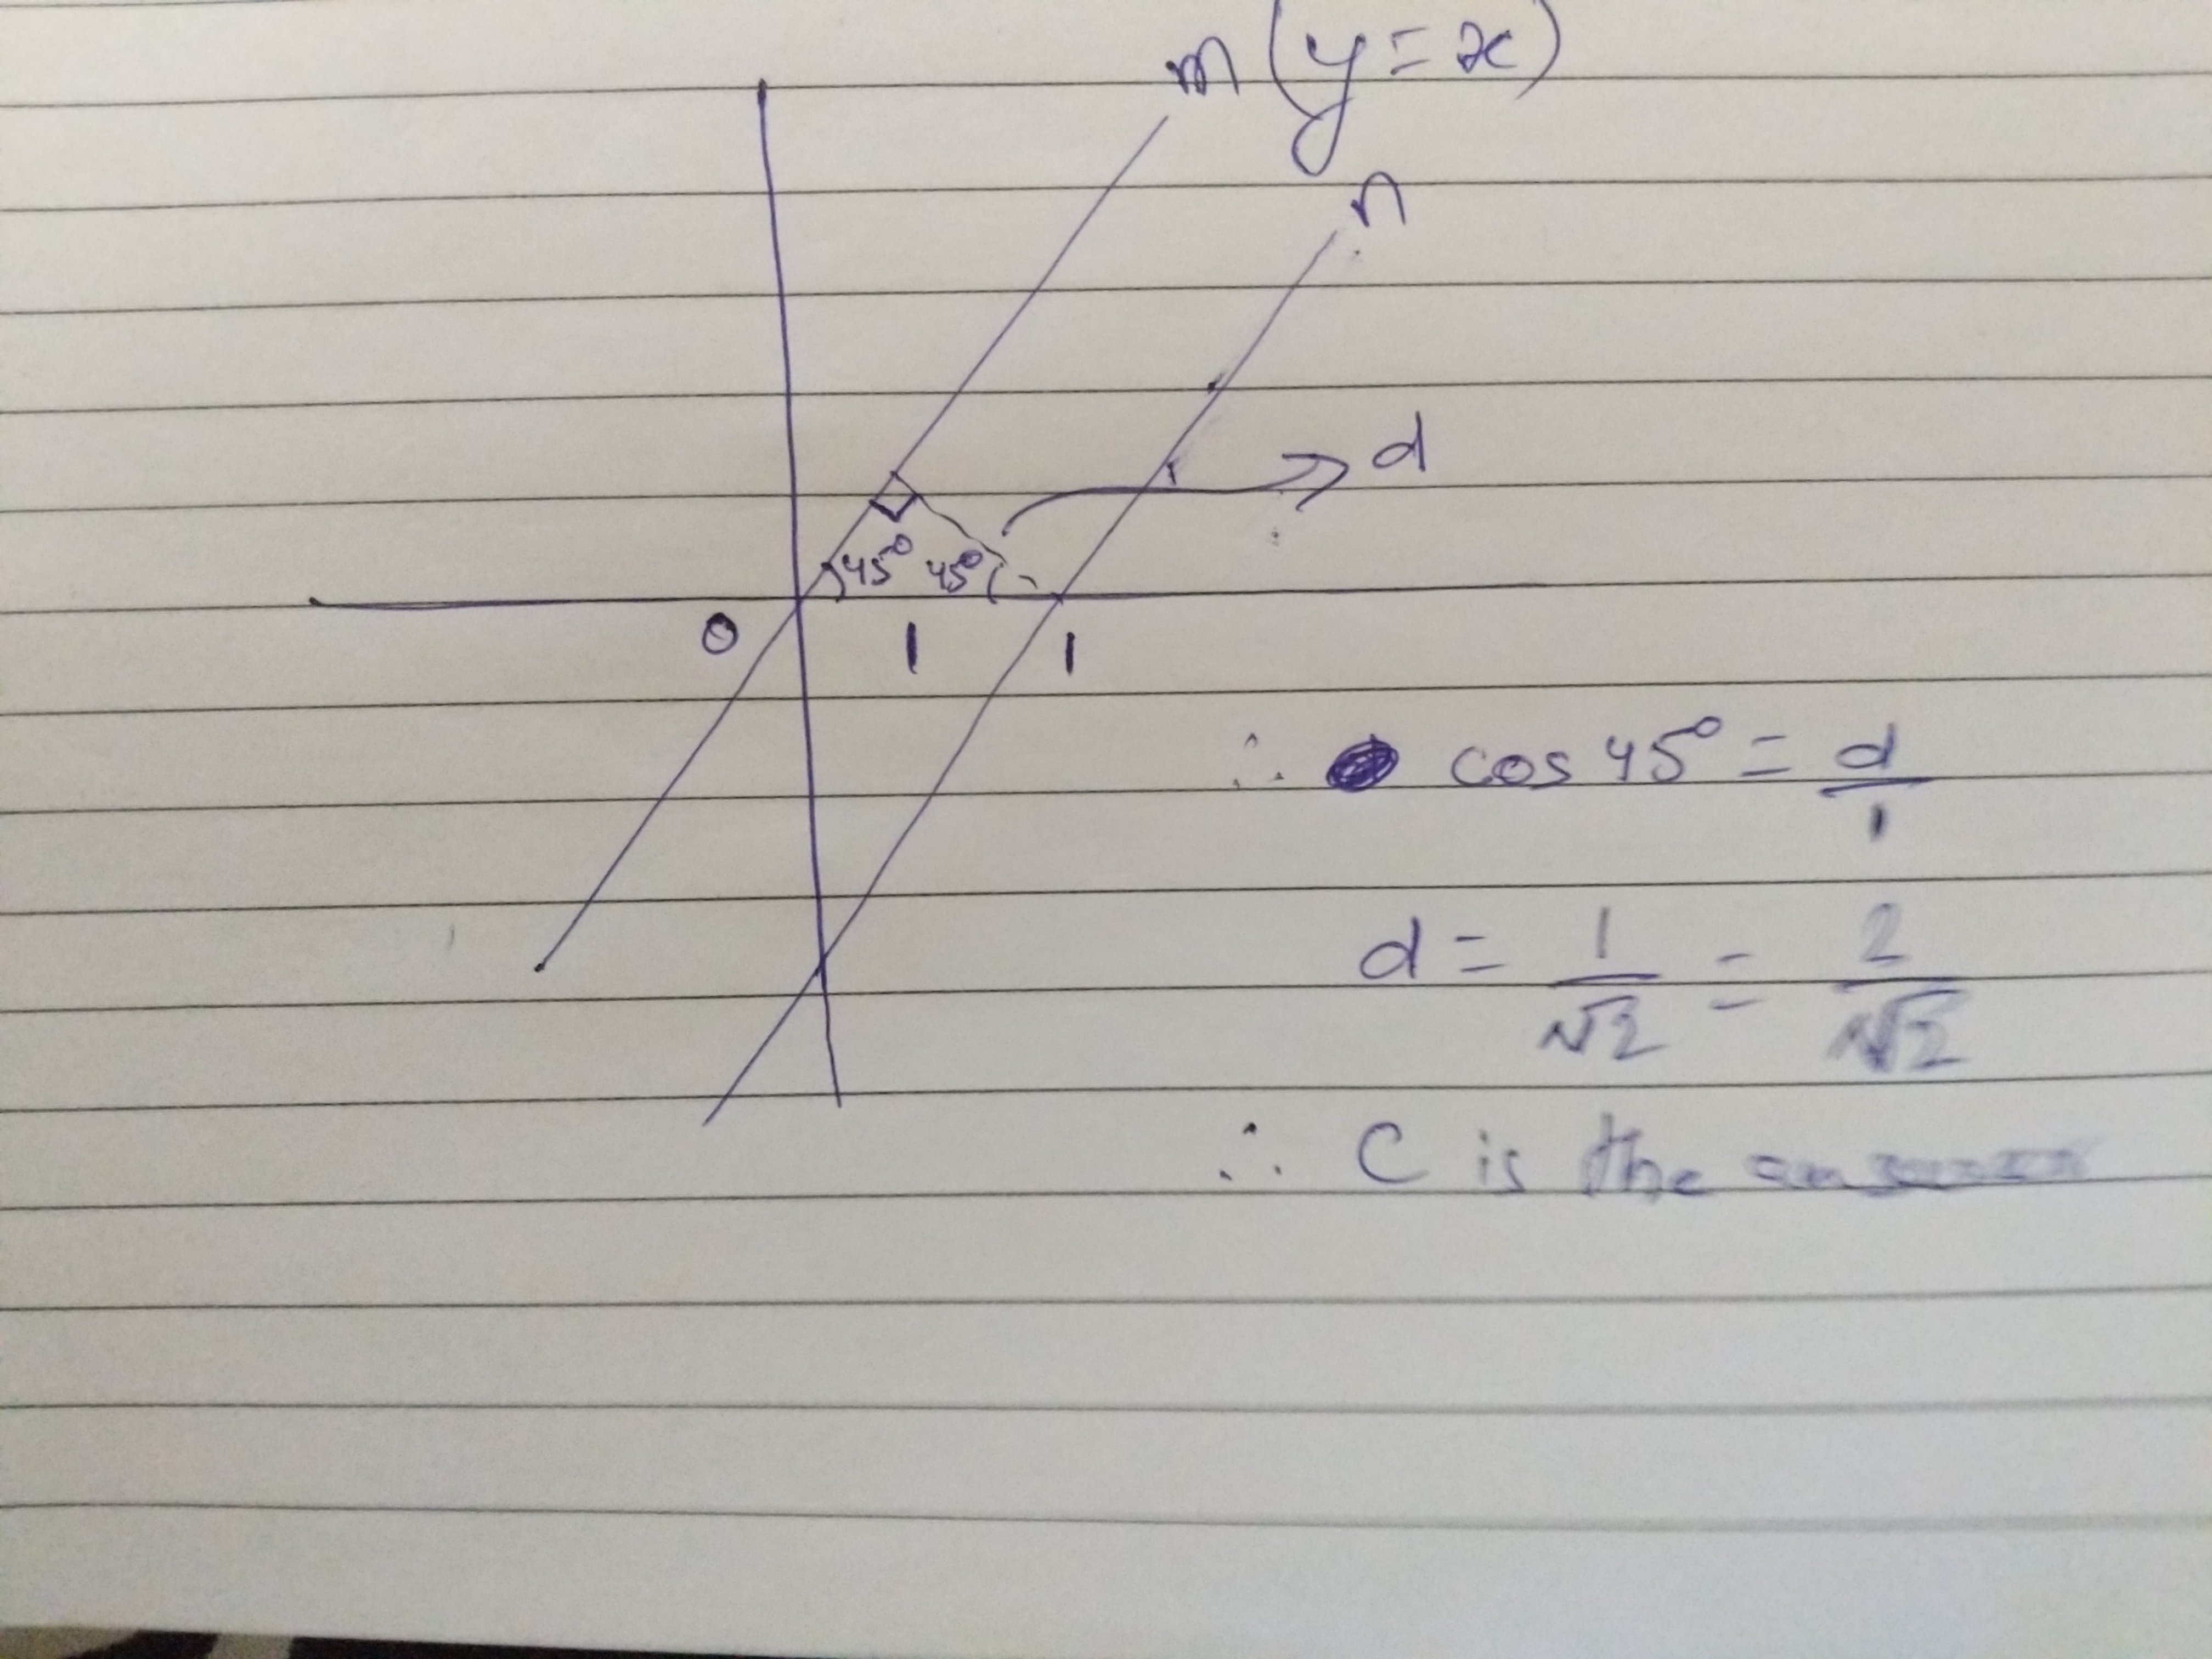 m (y = x)
n
d
45° 45°
0 1 1
∴ cos 45° = d/1
d = 1/√2 = 2/√2
∴ C is the